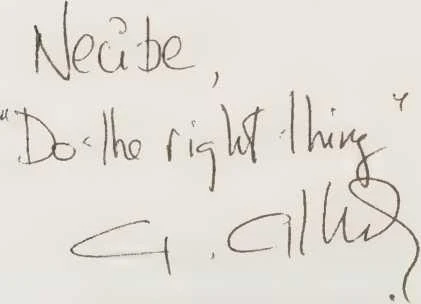 Necibe,
"Do the right thing"